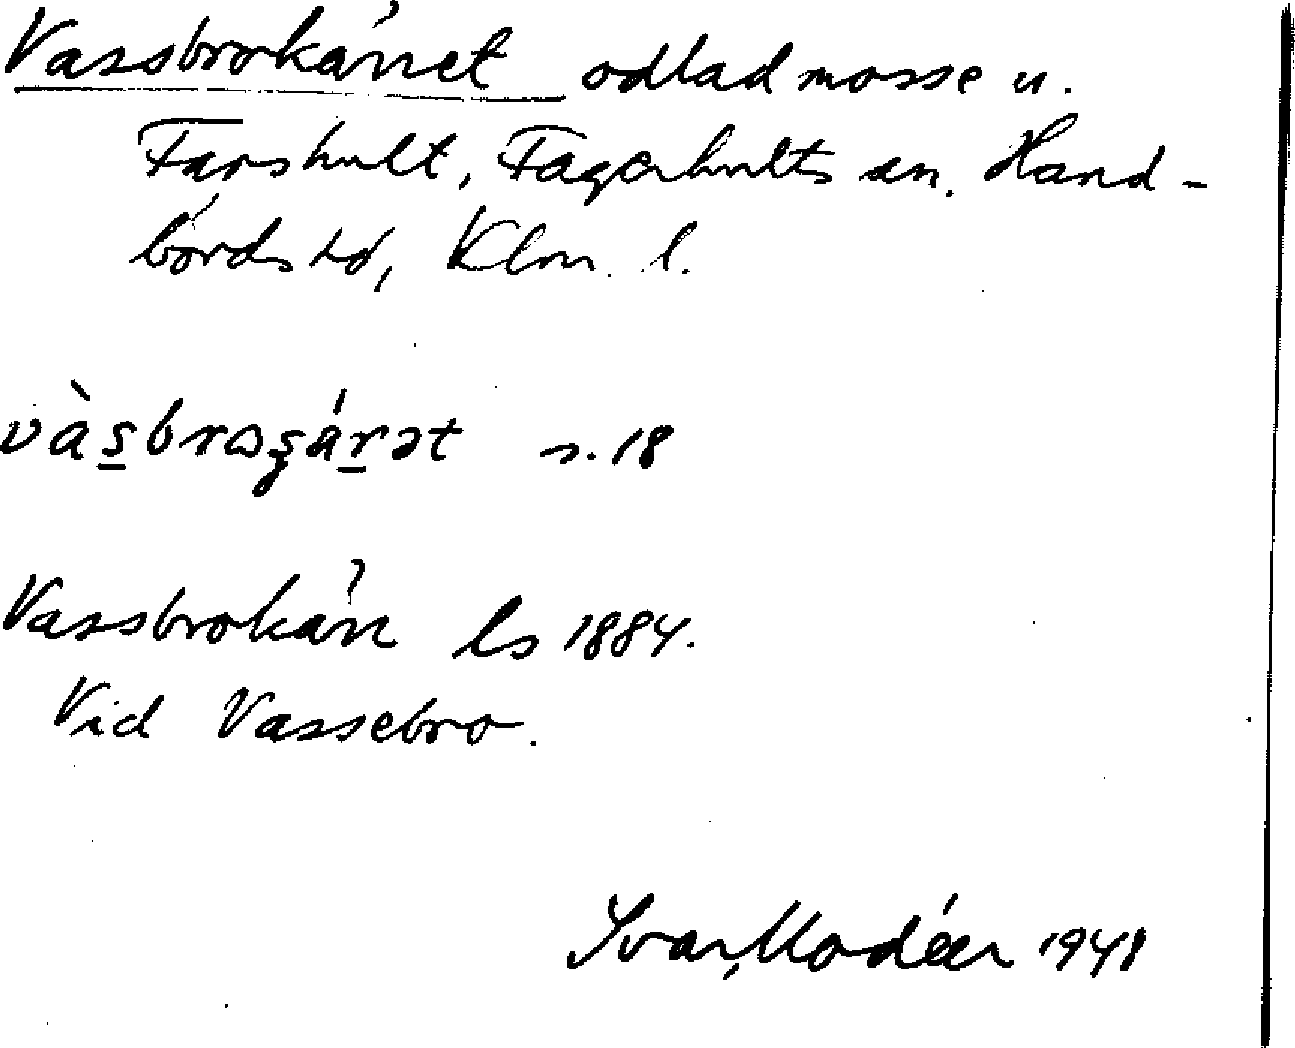 Vassbrokärret odlad mosse u.
Farshult, Fagerhults sn. Hand-
börds hd, Klm. l.
s. 18
Vassbrokärr ls 1884.
Vid Vassebro.
Ivar Modéer 1948